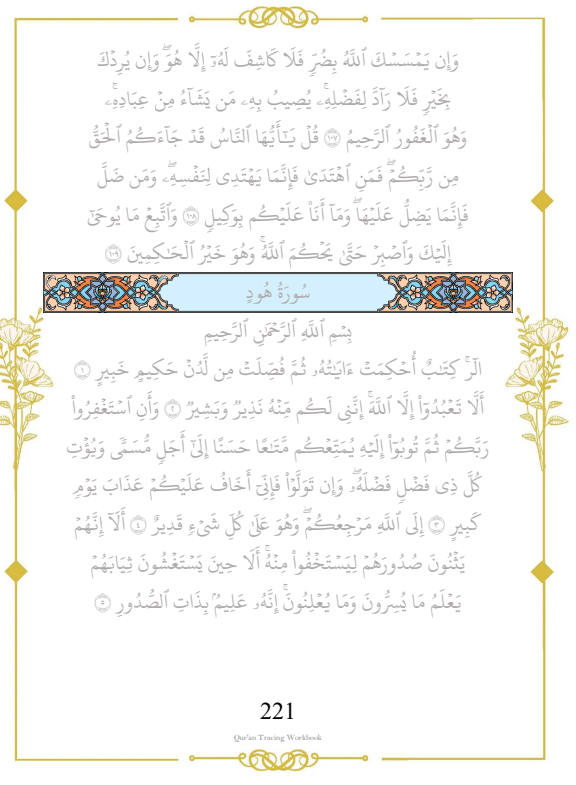 وَإِن يَمۡسَسۡكَ ٱللَّهُ بِضُرّٖ فَلَا كَاشِفَ لَهُۥٓ إِلَّا هُوَۖ وَإِن يُرِدۡكَ
بِخَيۡرٖ فَلَا رَآدَّ لِفَضۡلِهِۦۚ يُصِيبُ بِهِۦ مَن يَشَآءُ مِنۡ عِبَادِهِۦۚ
وَهُوَ ٱلۡغَفُورُ ٱلرَّحِيمُ ١٠٧ قُلۡ يَٰٓأَيُّهَا ٱلنَّاسُ قَدۡ جَآءَكُمُ ٱلۡحَقُّ
مِن رَّبِّكُمۡۖ فَمَنِ ٱهۡتَدَىٰ فَإِنَّمَا يَهۡتَدِي لِنَفۡسِهِۦۖ وَمَن ضَلَّ
فَإِنَّمَا يَضِلُّ عَلَيۡهَاۖ وَمَآ أَنَا۠ عَلَيۡكُم بِوَكِيلٖ ١٠٨ وَٱتَّبِعۡ مَا يُوحَىٰٓ
إِلَيۡكَ وَٱصۡبِرۡ حَتَّىٰ يَحۡكُمَ ٱللَّهُۚ وَهُوَ خَيۡرُ ٱلۡحَٰكِمِينَ ١٠٩
سُورَةُ هُودٍ
بِسۡمِ ٱللَّهِ ٱلرَّحۡمَٰنِ ٱلرَّحِيمِ
الٓرۚ كِتَٰبٌ أُحۡكِمَتۡ ءَايَٰتُهُۥ ثُمَّ فُصِّلَتۡ مِن لَّدُنۡ حَكِيمٍ خَبِيرٍ ١
أَلَّا تَعۡبُدُوٓاْ إِلَّا ٱللَّهَۚ إِنَّنِي لَكُم مِّنۡهُ نَذِيرٞ وَبَشِيرٞ ٢ وَأَنِ ٱسۡتَغۡفِرُواْ
رَبَّكُمۡ ثُمَّ تُوبُوٓاْ إِلَيۡهِ يُمَتِّعۡكُم مَّتَٰعًا حَسَنًا إِلَىٰٓ أَجَلٖ مُّسَمّٗى وَيُؤۡتِ
كُلَّ ذِي فَضۡلٖ فَضۡلَهُۥۖ وَإِن تَوَلَّوۡاْ فَإِنِّيٓ أَخَافُ عَلَيۡكُمۡ عَذَابَ يَوۡمٖ
كَبِيرٍ ٣ إِلَى ٱللَّهِ مَرۡجِعُكُمۡۖ وَهُوَ عَلَىٰ كُلِّ شَيۡءٖ قَدِيرٌ ٤ أَلَآ إِنَّهُمۡ
يَثۡنُونَ صُدُورَهُمۡ لِيَسۡتَخۡفُواْ مِنۡهُۚ أَلَا حِينَ يَسۡتَغۡشُونَ ثِيَابَهُمۡ
يَعۡلَمُ مَا يُسِرُّونَ وَمَا يُعۡلِنُونَۚ إِنَّهُۥ عَلِيمُۢ بِذَاتِ ٱلصُّدُورِ ٥
221
Qur'an Tracing Workbook